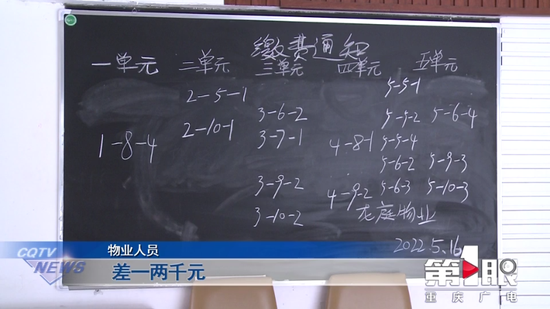 缴费通知
一单元 二单元 三单元 四单元 五单元
2-5-1 5-5-1
3-6-2 5-5-2 5-6-4
1-8-4 2-10-1 3-7-1 4-8-1 5-5-4
5-6-2 5-9-3
3-9-2 4-9-2 5-6-3 5-10-3
3-10-2 龙庭物业
2022.5.16
CQTV
NEWS
物业人员
差一两千元
第1眼
重庆广电